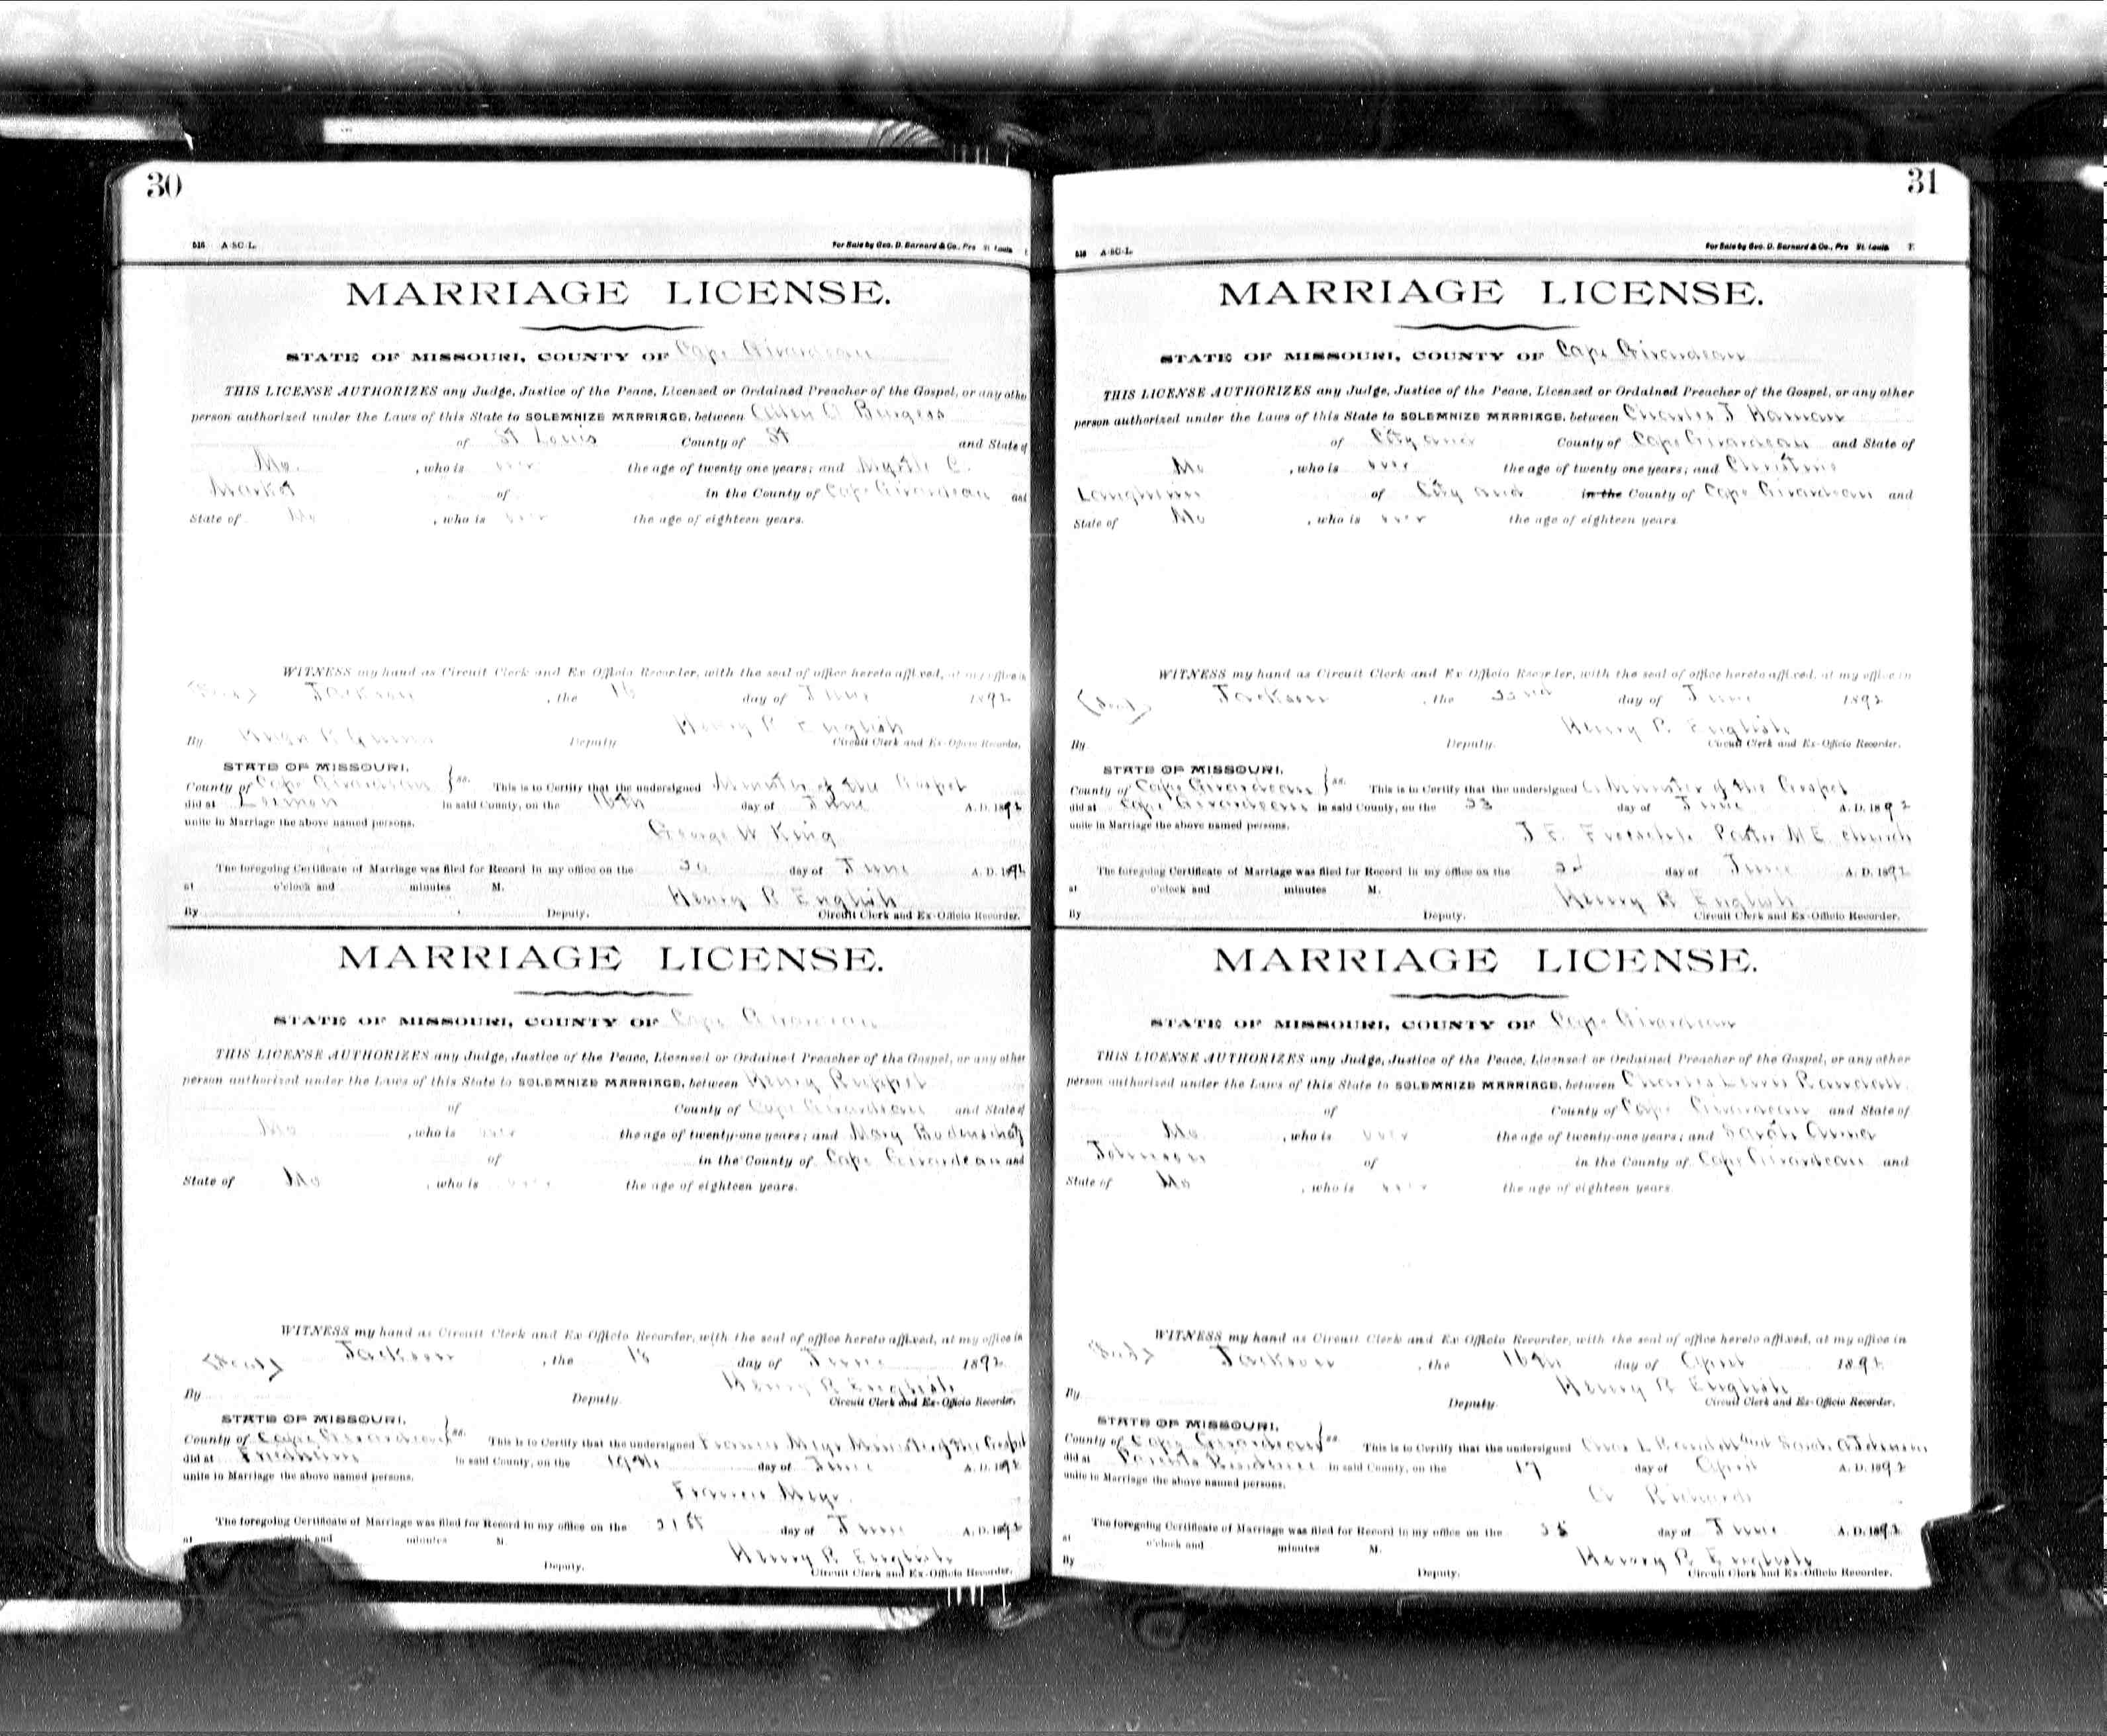 30
518 A-SC-L. For Sale by Geo. D. Barnard & Co., Prs St. Louis
MARRIAGE LICENSE.
STATE OF MISSOURI, COUNTY OF Cape Girardeau
THIS LICENSE AUTHORIZES any Judge, Justice of the Peace, Licensed or Ordained Preacher of the Gospel, or any othe
person authorized under the Laws of this State to SOLEMNIZE MARRIAGE, between Burgess
of St Louis County of St and State of
Mo. , who is over the age of twenty one years; and Myrtle C.
of in the County of Cape Girardeau and
State of Mo , who is over the age of eighteen years.
WITNESS my hand as Circuit Clerk and Ex Officio Recorder, with the seal of office hereto affixed, at my office in
(Seal) Jackson , the 16 day of June 1892
Henry R English
By Deputy Circuit Clerk and Ex-Officio Recorder.
STATE OF MISSOURI,
County of Cape Girardeau } ss. This is to Certify that the undersigned Minister of the Gospel
did at in said County, on the 16th day of June A. D. 1892
unite in Marriage the above named persons.
George W King
The foregoing Certificate of Marriage was filed for Record in my office on the 20 day of June A. D. 1892
at o'clock and minutes M. Henry R English
By Deputy. Circuit Clerk and Ex-Officio Recorder.
MARRIAGE LICENSE.
STATE OF MISSOURI, COUNTY OF Cape Girardeau
THIS LICENSE AUTHORIZES any Judge, Justice of the Peace, Licensed or Ordained Preacher of the Gospel, or any othe
person authorized under the Laws of this State to SOLEMNIZE MARRIAGE, between Henry Ruppel
of County of Cape Girardeau and State of
Mo , who is over the age of twenty-one years; and Mary Bodenschatz
of in the County of Cape Girardeau and
State of Mo , who is over the age of eighteen years.
WITNESS my hand as Circuit Clerk and Ex Officio Recorder, with the seal of office hereto affixed, at my office in
(Seal) Jackson , the 18 day of June 1892
Henry R English
By Deputy. Circuit Clerk and Ex-Officio Recorder.
STATE OF MISSOURI,
County of Cape Girardeau } ss. This is to Certify that the undersigned Francis Meyr Minister of the Gospel
did at Friedheim in said County, on the 19th day of June A. D. 1892
unite in Marriage the above named persons.
Francis Meyr
The foregoing Certificate of Marriage was filed for Record in my office on the 21st day of June A. D. 1892
at o'clock and minutes M.
Henry R English
Deputy. Circuit Clerk and Ex-Officio Recorder.
31
518 A-SC-L. For Sale by Geo. D. Barnard & Co., Prs St. Louis
MARRIAGE LICENSE.
STATE OF MISSOURI, COUNTY OF Cape Girardeau
THIS LICENSE AUTHORIZES any Judge, Justice of the Peace, Licensed or Ordained Preacher of the Gospel, or any other
person authorized under the Laws of this State to SOLEMNIZE MARRIAGE, between Charles J Haman
of City and County of Cape Girardeau and State of
Mo , who is over the age of twenty one years; and Christine
of City and in the County of Cape Girardeau and
State of Mo , who is over the age of eighteen years.
WITNESS my hand as Circuit Clerk and Ex Officio Recorder, with the seal of office hereto affixed, at my office in
(Seal) Jackson , the 22nd day of June 1892
Henry R English
By Deputy. Circuit Clerk and Ex-Officio Recorder.
STATE OF MISSOURI,
County of Cape Girardeau } ss. This is to Certify that the undersigned a Minister of the Gospel
did at Cape Girardeau in said County, on the 23 day of June A. D. 1892
unite in Marriage the above named persons.
J. E. Pastor M E church
The foregoing Certificate of Marriage was filed for Record in my office on the 24 day of June A. D. 1892
at o'clock and minutes M. Henry R English
By Deputy. Circuit Clerk and Ex-Officio Recorder.
MARRIAGE LICENSE.
STATE OF MISSOURI, COUNTY OF Cape Girardeau
THIS LICENSE AUTHORIZES any Judge, Justice of the Peace, Licensed or Ordained Preacher of the Gospel, or any other
person authorized under the Laws of this State to SOLEMNIZE MARRIAGE, between Charles Lewis Randall
of County of Cape Girardeau and State of
Mo , who is over the age of twenty-one years; and Sarah Anna
Johnson of in the County of Cape Girardeau and
State of Mo , who is over the age of eighteen years.
WITNESS my hand as Circuit Clerk and Ex Officio Recorder, with the seal of office hereto affixed, at my office in
(Seal) Jackson , the 16th day of April 1892
Henry R English
By Deputy. Circuit Clerk and Ex-Officio Recorder.
STATE OF MISSOURI,
County of Cape Girardeau } ss. This is to Certify that the undersigned Chas L Randall and Sarah A Johnson
did at Residence in said County, on the 17 day of April A. D. 1892
unite in Marriage the above named persons.
Richards
The foregoing Certificate of Marriage was filed for Record in my office on the 25 day of June A. D. 1892
at o'clock and minutes M. Henry R English
By Deputy. Circuit Clerk and Ex-Officio Recorder.